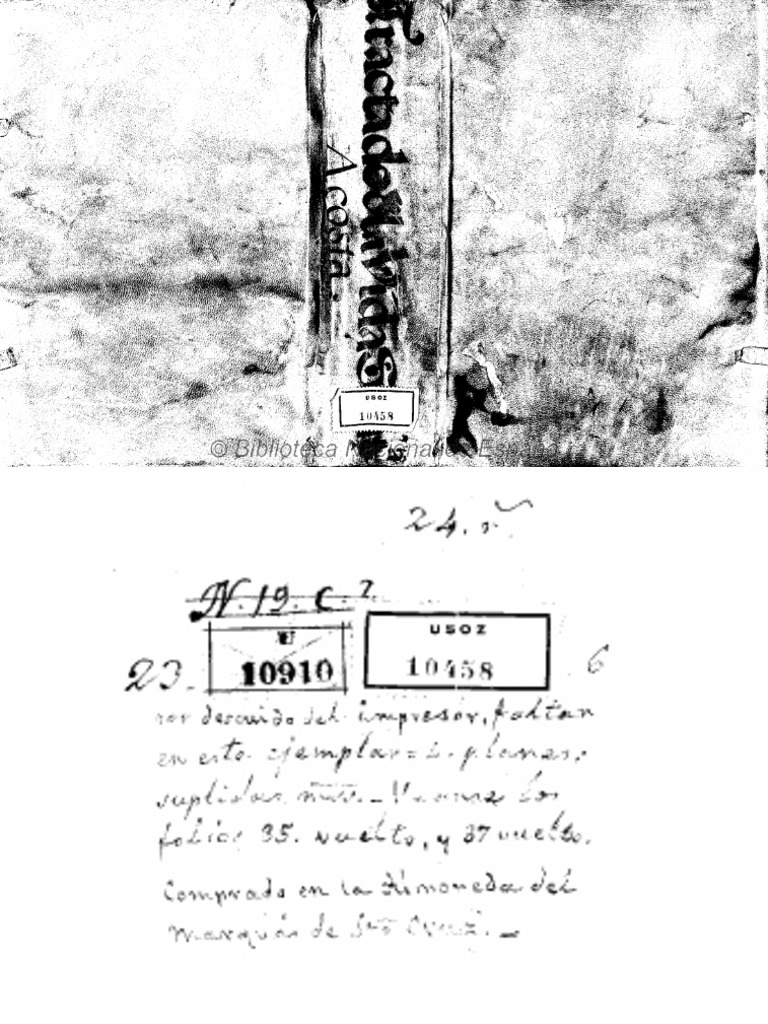 Tractado
Acosta.
USOZ
10458
© Biblioteca Nacional de España
24. r
N. 19. C. 7.
23.
U
10910
USOZ
10458
6
por descuido del impresor, faltan
en este ejemplar = 2. planas,
suplidas mss. - Veanse los
folios 35. vuelto, y 37 vuelto.
Comprado en la Almoneda del
Marqués de Sta Cruz. -